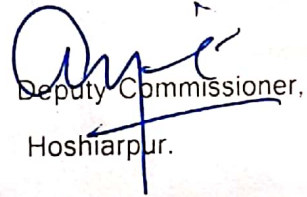 Deputy Commissioner,
Hoshiarpur.